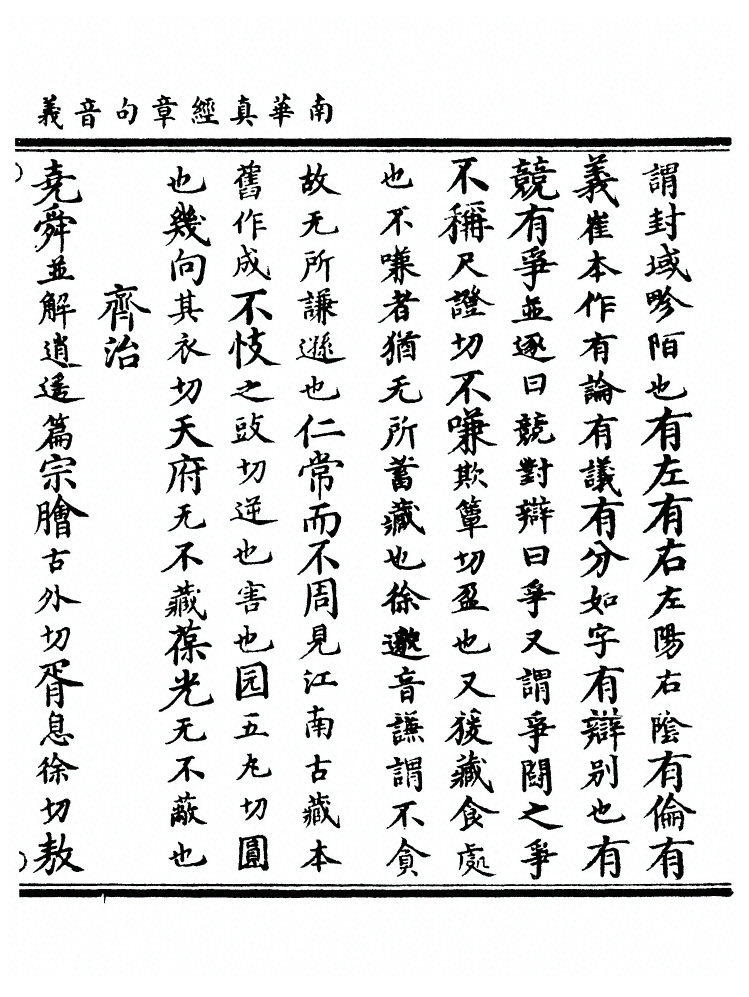 南華真經章句音義
謂封域畛陌也有左有右左陽右陰有倫有
義崔本作有論有議有分如字有辯別也有
競有爭並逐曰競對辯曰爭又謂爭鬪之爭
不稱尺證切不嗛欺簟切盈也又猨藏食處
也不嗛者猶无所蓄藏也徐邈音謙謂不貪
故无所謙遜也仁常而不周見江南古藏本
舊作成不忮之豉切逆也害也园五丸切圓
也幾向其衣切天府无不藏葆光无不蔽也
齊治
堯舜並解逍遙篇宗膾古外切胥息徐切敖